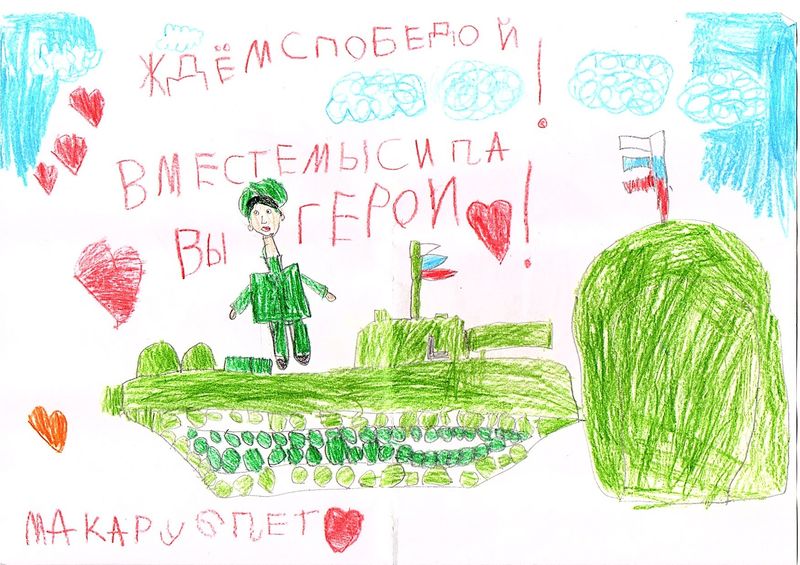 ЖДЁМ С ПОБЕДОЙ!
ВМЕСТЕ МЫ СИЛА
ВЫ ГЕРОИ!
МАКАРУ 6 ЛЕТ